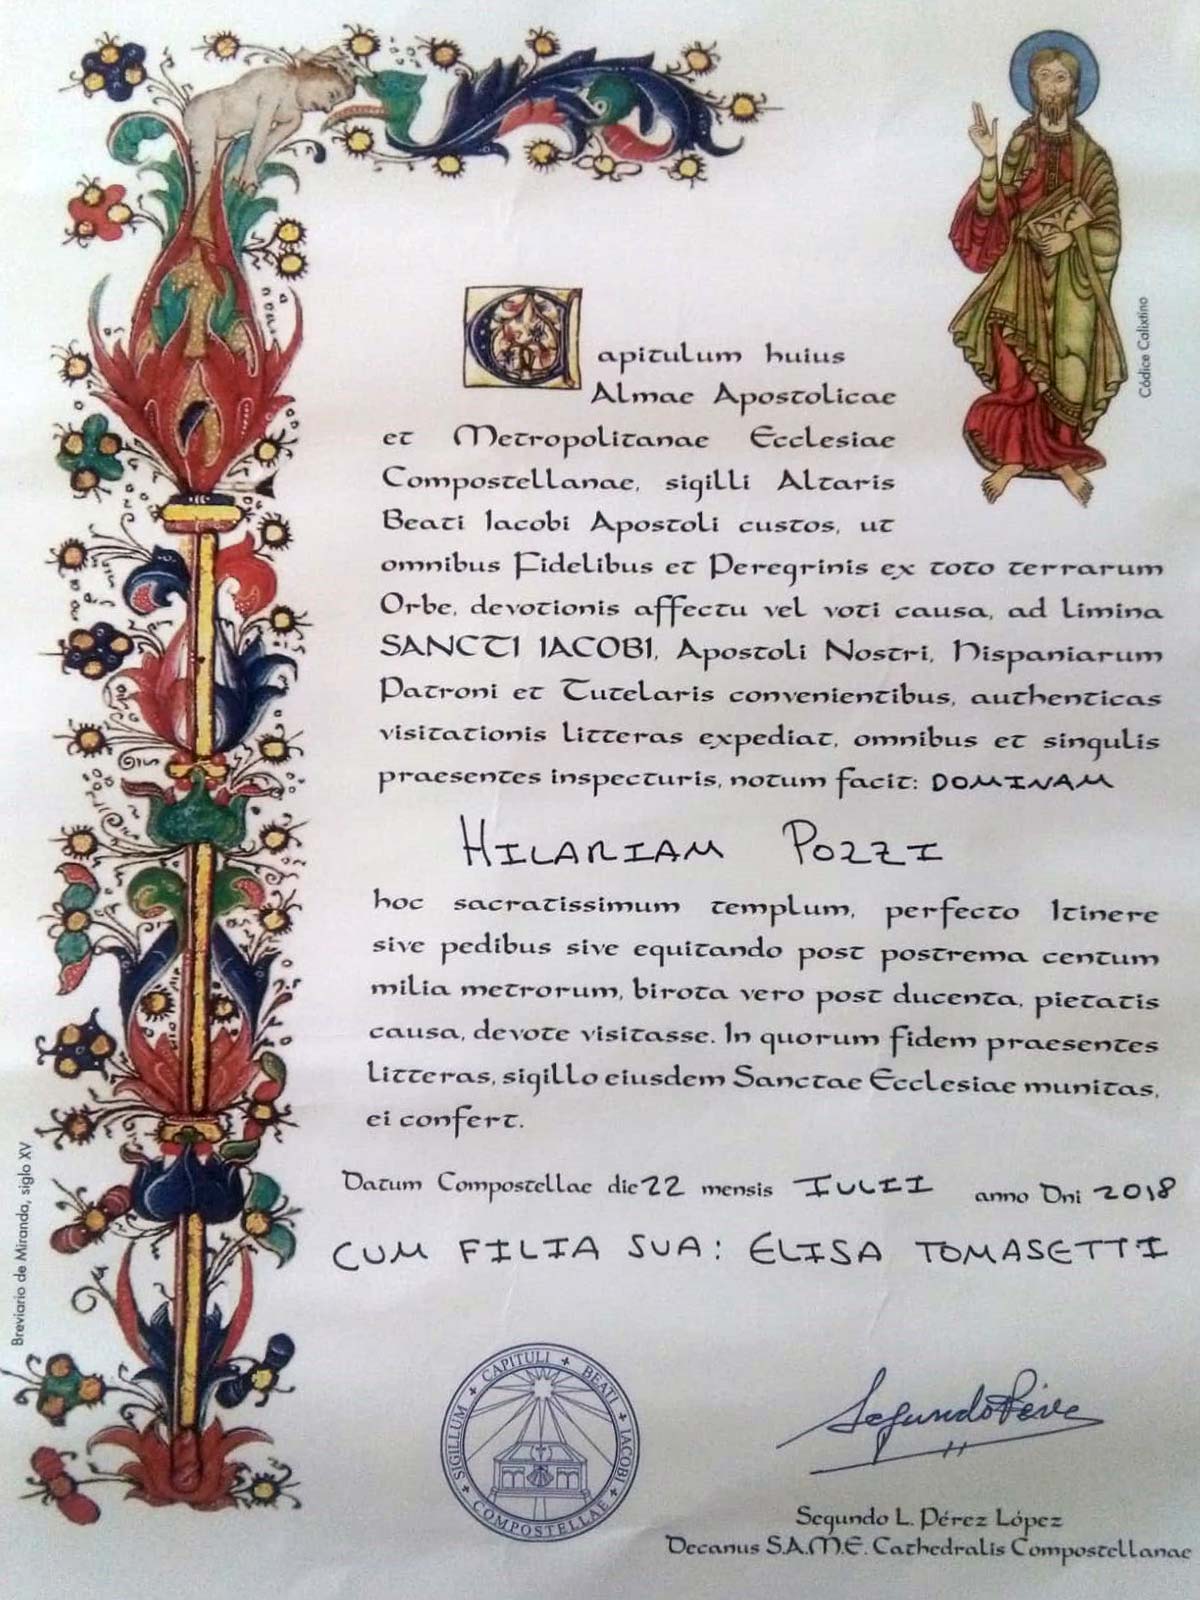 Capitulum huius
Almae Apostolicae
et Metropolitanae Ecclesiae
Compostellanae, sigilli Altaris
Beati Iacobi Apostoli custos, ut
omnibus Fidelibus et Peregrinis ex toto terrarum
Orbe, devotionis affectu vel voti causa, ad limina
SANCTI IACOBI, Apostoli Nostri, Hispaniarum
Patroni et Tutelaris convenientibus, authenticas
visitationis litteras expediat, omnibus et singulis
praesentes inspecturis, notum facit: DOMINAM
HILARIAM POZZI
hoc sacratissimum templum, perfecto Itinere
sive pedibus sive equitando post postrema centum
milia metrorum, birota vero post ducenta, pietatis
causa, devote visitasse. In quorum fidem praesentes
litteras, sigillo eiusdem Sanctae Ecclesiae munitas,
ei confert.
Datum Compostellae die 22 mensis IULII anno Dni 2018
CUM FILIA SUA: ELISA TOMASETTI
SIGILLUM + CAPITULI + BEATI + IACOBI + COMPOSTELLAE +
Segundo Pérez
Segundo L. Pérez López
Decanus S.A.M.E. Cathedralis Compostellanae
Códice Calixtino
Breviario de Miranda, siglo XV